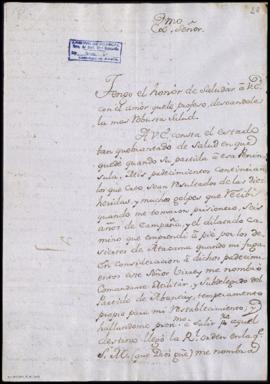 Exmo. Señor.
Tengo el honor de Saludar a V.E.
con el amor que le profeso, deseandole
la mas robusta Salud.
A V.E. consta el estado
tan quebrantado de Salud en que
quede quando Su partida a esa Penin-
sula; Mis padecimientos continuan
los que Creo Sean Resultados de las diez
heridas, y muchos golpes que Recibi
quando me tomaron prisionero, Seis
años de Campaña, y el dilatado Ca-
mino que emprendi a pie, por los de-
siertos de Atacama quando mi fuga
En consideracion a dichos padeci-
mientos este Señor Virrey me nombró
Comandante Militar, y Subdelegado del
Partido de Abancay, temperamento
propio para mi Restablecimiento; y
hallandome para Salir a aquel
destino llegó la Rl. orden en la q.
S.M. (que Dios gue) me nombra